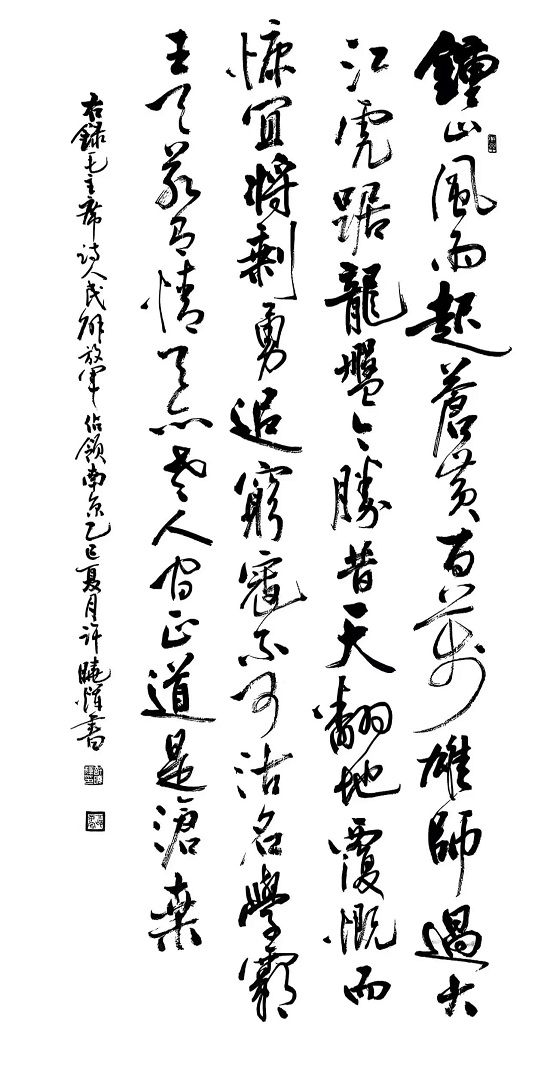 鍾山風雨起蒼黃百萬雄師過大
江虎踞龍盤今勝昔天翻地覆慨而
慷宜將剩勇追窮寇不可沽名學霸
王天若有情天亦老人間正道是滄桑
右錄毛主席詩人民解放軍佔領南京乙巳夏月許曉書